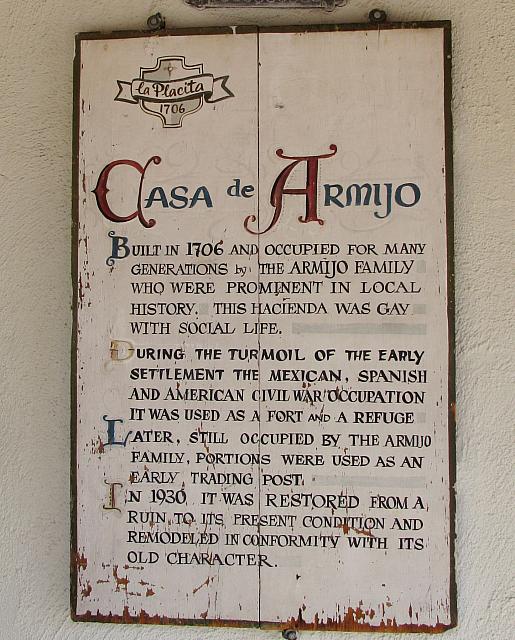 la Placita
1706
CASA de ARMIJO
BUILT IN 1706 AND OCCUPIED FOR MANY
GENERATIONS by THE ARMIJO FAMILY
WHO WERE PROMINENT IN LOCAL
HISTORY. THIS HACIENDA WAS GAY
WITH SOCIAL LIFE.
DURING THE TURMOIL OF THE EARLY
SETTLEMENT THE MEXICAN, SPANISH
AND AMERICAN CIVIL WAR OCCUPATION
IT WAS USED AS A FORT AND A REFUGE
LATER, STILL OCCUPIED BY THE ARMIJO
FAMILY, PORTIONS WERE USED AS AN
EARLY TRADING POST.
IN 1930 IT WAS RESTORED FROM A
RUIN TO ITS PRESENT CONDITION AND
REMODELED IN CONFORMITY WITH ITS
OLD CHARACTER.